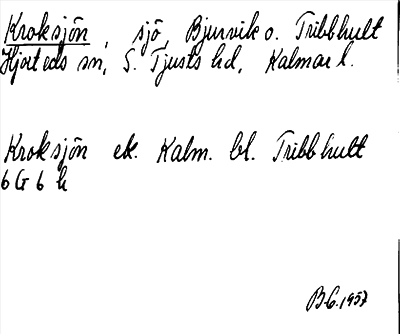 Kroksjön, sjö, Bjurvik o. Tribbhult
Hjorteds sn, S. Tjusts hd, Kalmar l.
Kroksjön ek. Kalm. bl. Tribbhult
6 G 6 h
BG. 1957